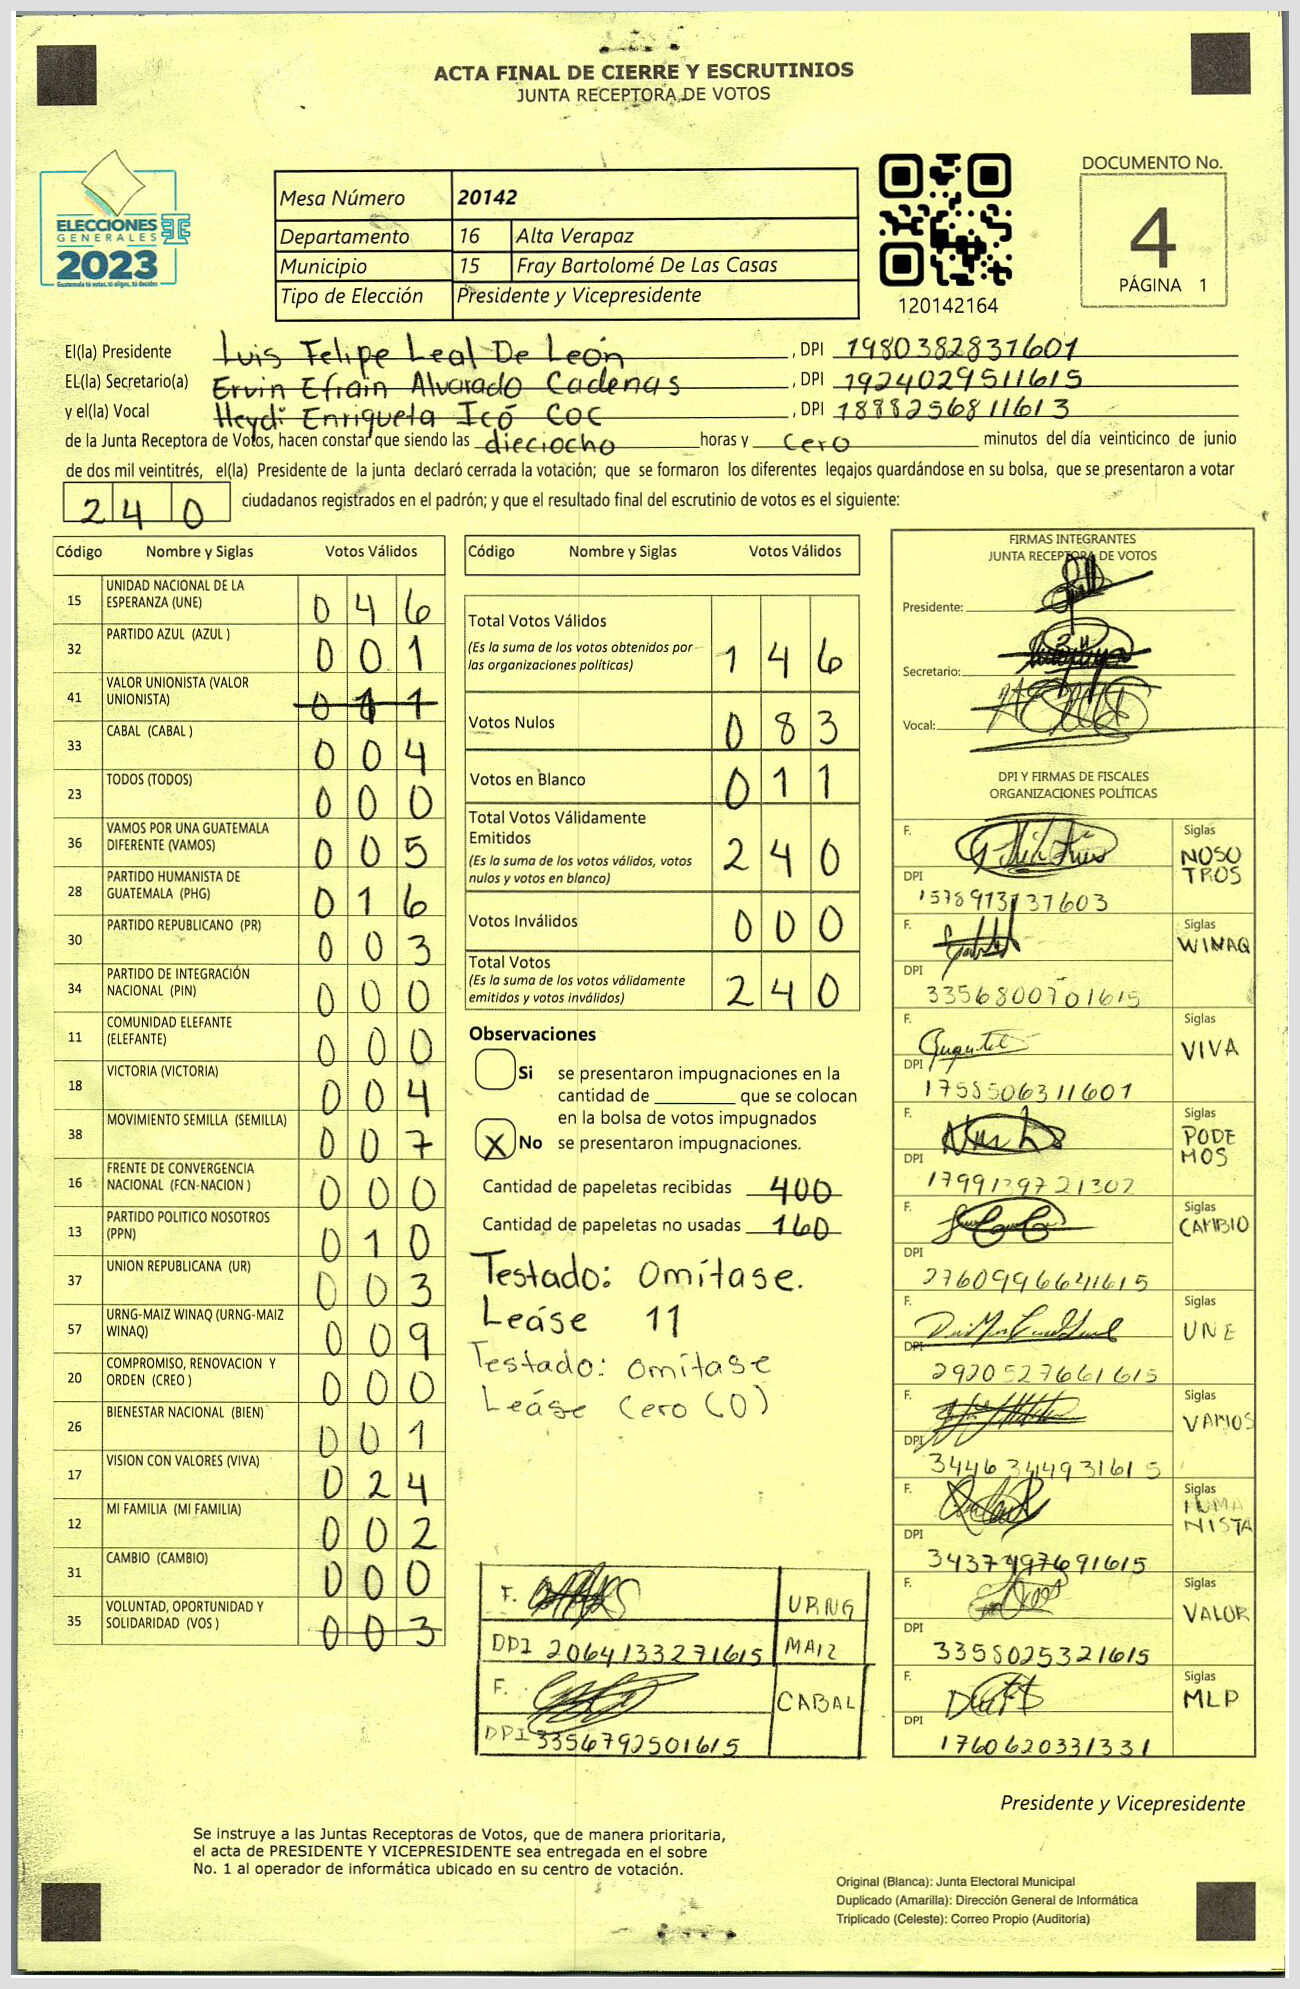 ACTA FINAL DE CIERRE Y ESCRUTINIOS
JUNTA RECEPTORA DE VOTOS
ELECCIONES
GENERALES
2023
Guatemala tú votas, tú eliges, tú decides
Mesa Número 20142
Departamento 16 Alta Verapaz
Municipio 15 Fray Bartolomé De Las Casas
Tipo de Elección Presidente y Vicepresidente
120142164
DOCUMENTO No.
4
PÁGINA 1
El(la) Presidente Luis Felipe Leal De León, DPI 1980382831601
EL(la) Secretario(a) Ervin Efrain Alvarado Cadenas, DPI 1924029511615
y el(la) Vocal Heydi Enriqueta Icó COC, DPI 1888256811613
de la Junta Receptora de Votos, hacen constar que siendo las dieciocho horas y cero minutos del día veinticinco de junio
de dos mil veintitrés, el(la) Presidente de la junta declaró cerrada la votación; que se formaron los diferentes legajos guardándose en su bolsa, que se presentaron a votar
240 ciudadanos registrados en el padrón; y que el resultado final del escrutinio de votos es el siguiente:
Código Nombre y Siglas Votos Válidos
15 UNIDAD NACIONAL DE LA ESPERANZA (UNE) 0 4 6
32 PARTIDO AZUL (AZUL ) 0 0 1
41 VALOR UNIONISTA (VALOR UNIONISTA) 0 1 1
33 CABAL (CABAL ) 0 0 4
23 TODOS (TODOS) 0 0 0
36 VAMOS POR UNA GUATEMALA DIFERENTE (VAMOS) 0 0 5
28 PARTIDO HUMANISTA DE GUATEMALA (PHG) 0 1 6
30 PARTIDO REPUBLICANO (PR) 0 0 3
34 PARTIDO DE INTEGRACIÓN NACIONAL (PIN) 0 0 0
11 COMUNIDAD ELEFANTE (ELEFANTE) 0 0 0
18 VICTORIA (VICTORIA) 0 0 4
38 MOVIMIENTO SEMILLA (SEMILLA) 0 0 7
16 FRENTE DE CONVERGENCIA NACIONAL (FCN-NACION ) 0 0 0
13 PARTIDO POLITICO NOSOTROS (PPN) 0 1 0
37 UNION REPUBLICANA (UR) 0 0 3
57 URNG-MAIZ WINAQ (URNG-MAIZ WINAQ) 0 0 9
20 COMPROMISO, RENOVACION Y ORDEN (CREO ) 0 0 0
26 BIENESTAR NACIONAL (BIEN) 0 0 1
17 VISION CON VALORES (VIVA) 0 2 4
12 MI FAMILIA (MI FAMILIA) 0 0 2
31 CAMBIO (CAMBIO) 0 0 0
35 VOLUNTAD, OPORTUNIDAD Y SOLIDARIDAD (VOS ) 0 0 3
Código Nombre y Siglas Votos Válidos
Total Votos Válidos
(Es la suma de los votos obtenidos por
las organizaciones políticas) 1 4 6
Votos Nulos 0 8 3
Votos en Blanco 0 1 1
Total Votos Válidamente
Emitidos
(Es la suma de los votos válidos, votos
nulos y votos en blanco) 2 4 0
Votos Inválidos 0 0 0
Total Votos
(Es la suma de los votos válidamente
emitidos y votos inválidos) 2 4 0
Observaciones
Si se presentaron impugnaciones en la
cantidad de ________ que se colocan
en la bolsa de votos impugnados
X No se presentaron impugnaciones.
Cantidad de papeletas recibidas 400
Cantidad de papeletas no usadas 160
Testado: Omítase.
Leáse 11
Testado: omítase
Leáse Cero (0)
F. URNG
DPI 2064133271615 MAIZ
F. CABAL
DPI 3356792501615
FIRMAS INTEGRANTES
JUNTA RECEPTORA DE VOTOS
Presidente:
Secretario:
Vocal:
DPI Y FIRMAS DE FISCALES
ORGANIZACIONES POLÍTICAS
F. Siglas
NOSO
TROS
DPI
F. Siglas
WINAQ
DPI
3356800701615
F. Siglas
VIVA
DPI
1758506311601
F. Siglas
PODE
MOS
DPI
1799139721302
F. Siglas
CAMBIO
DPI
2760996641615
F. Siglas
UNE
DPI
2920527661615
F. Siglas
VAMOS
DPI
3446344931615
F. Siglas
HUMA
NISTA
DPI
3437497691615
F. Siglas
VALOR
DPI
3358025321615
F. Siglas
MLP
DPI
1760620331331
Presidente y Vicepresidente
Se instruye a las Juntas Receptoras de Votos, que de manera prioritaria,
el acta de PRESIDENTE Y VICEPRESIDENTE sea entregada en el sobre
No. 1 al operador de informática ubicado en su centro de votación.
Original (Blanca): Junta Electoral Municipal
Duplicado (Amarilla): Dirección General de Informática
Triplicado (Celeste): Correo Propio (Auditoría)